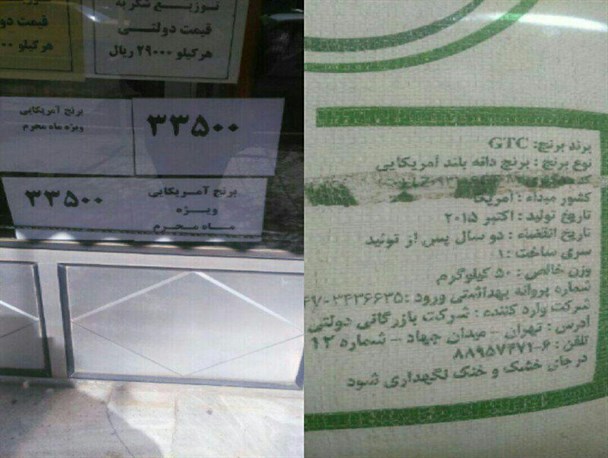 توزیع شکر به
قیمت دولتی
هر کیلو ۲۹۰۰۰ ریال
قیمت دو
هر کیلو
برنج آمریکایی
ویژه ماه محرم
۳۳۵۰۰
برنج آمریکایی
ویژه
ماه محرم
۳۳۵۰۰
برند برنج: GTC
نوع برنج : برنج دانه بلند آمریکایی
کشور مبداء : آمریکا
تاریخ تولید : اکتبر ۲۰۱۵
تاریخ انقضاء : دو سال پس از تولید
سری ساخت : ۱
وزن خالص : ۵۰ کیلوگرم
شماره پروانه بهداشتی ورود : ۴۷-۳۴۳۶۶۳۵
شرکت وارد کننده : شرکت بازرگانی دولتی
آدرس : تهران - میدان جهاد - شماره ۱۲
تلفن : ۶-۸۸۹۵۷۴۷۱
در جای خشک و خنک نگهداری شود